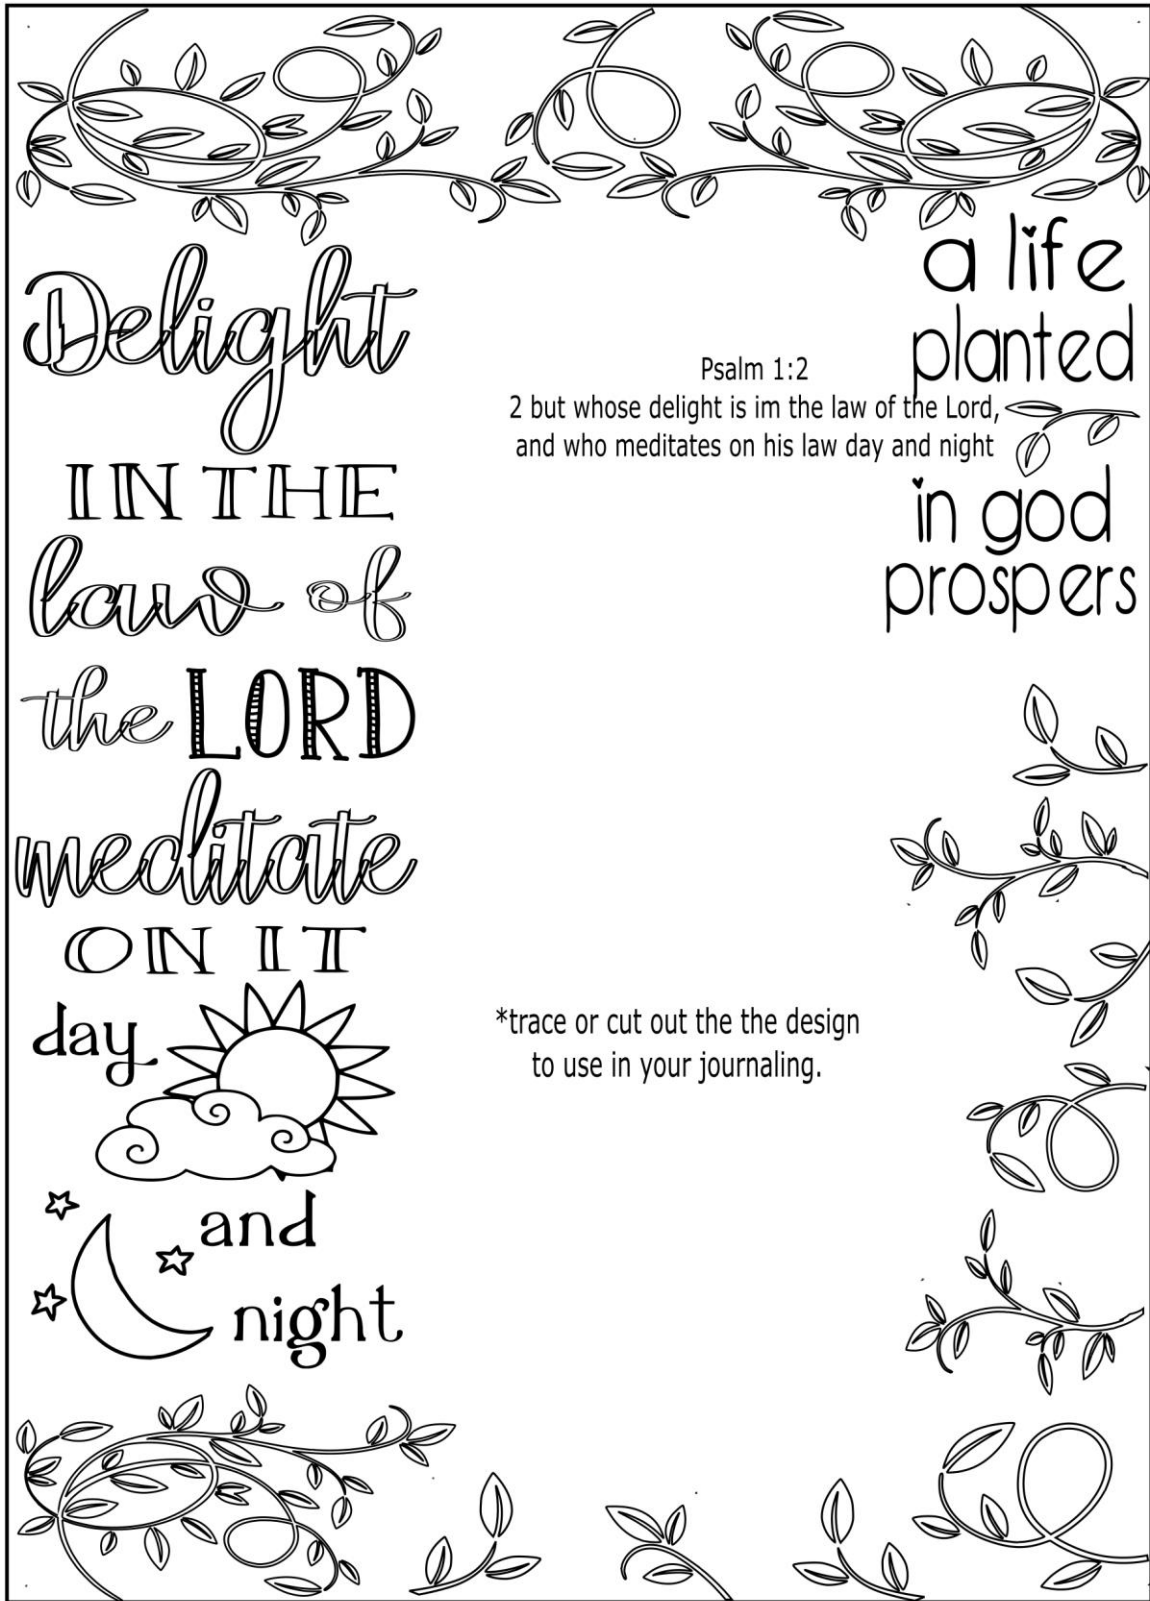 Delight
IN THE
law of
the LORD
meditate
ON IT
day
and
night
Psalm 1:2
2 but whose delight is im the law of the Lord,
and who meditates on his law day and night
*trace or cut out the the design
to use in your journaling.
a life
planted
in god
prospers